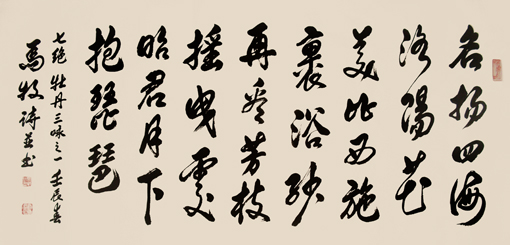 名扬四海
洛陽花
美比西施
裹浴紗
再看芳枝
摇曳處
昭君月下
抱琵琶
七绝 牡丹三咏之一 壬辰春
馬牧诗並书